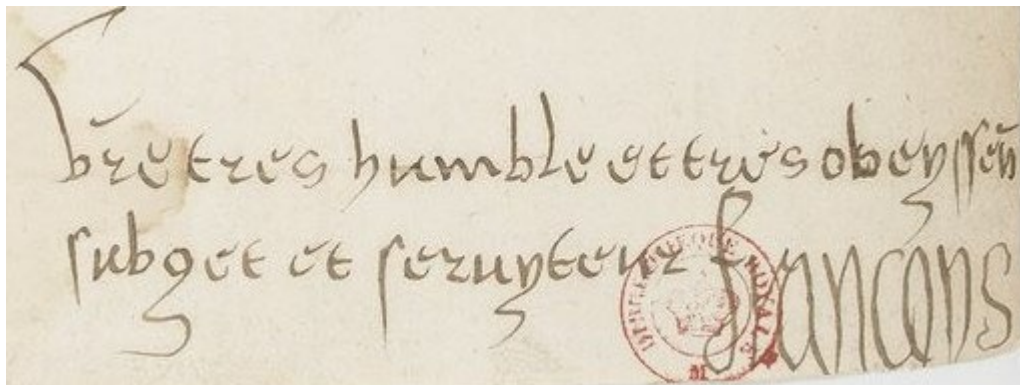 vre tres humble et tres obeyssen
subget et seruyteur françoys
BIBLIOTHEQUE ROYALE